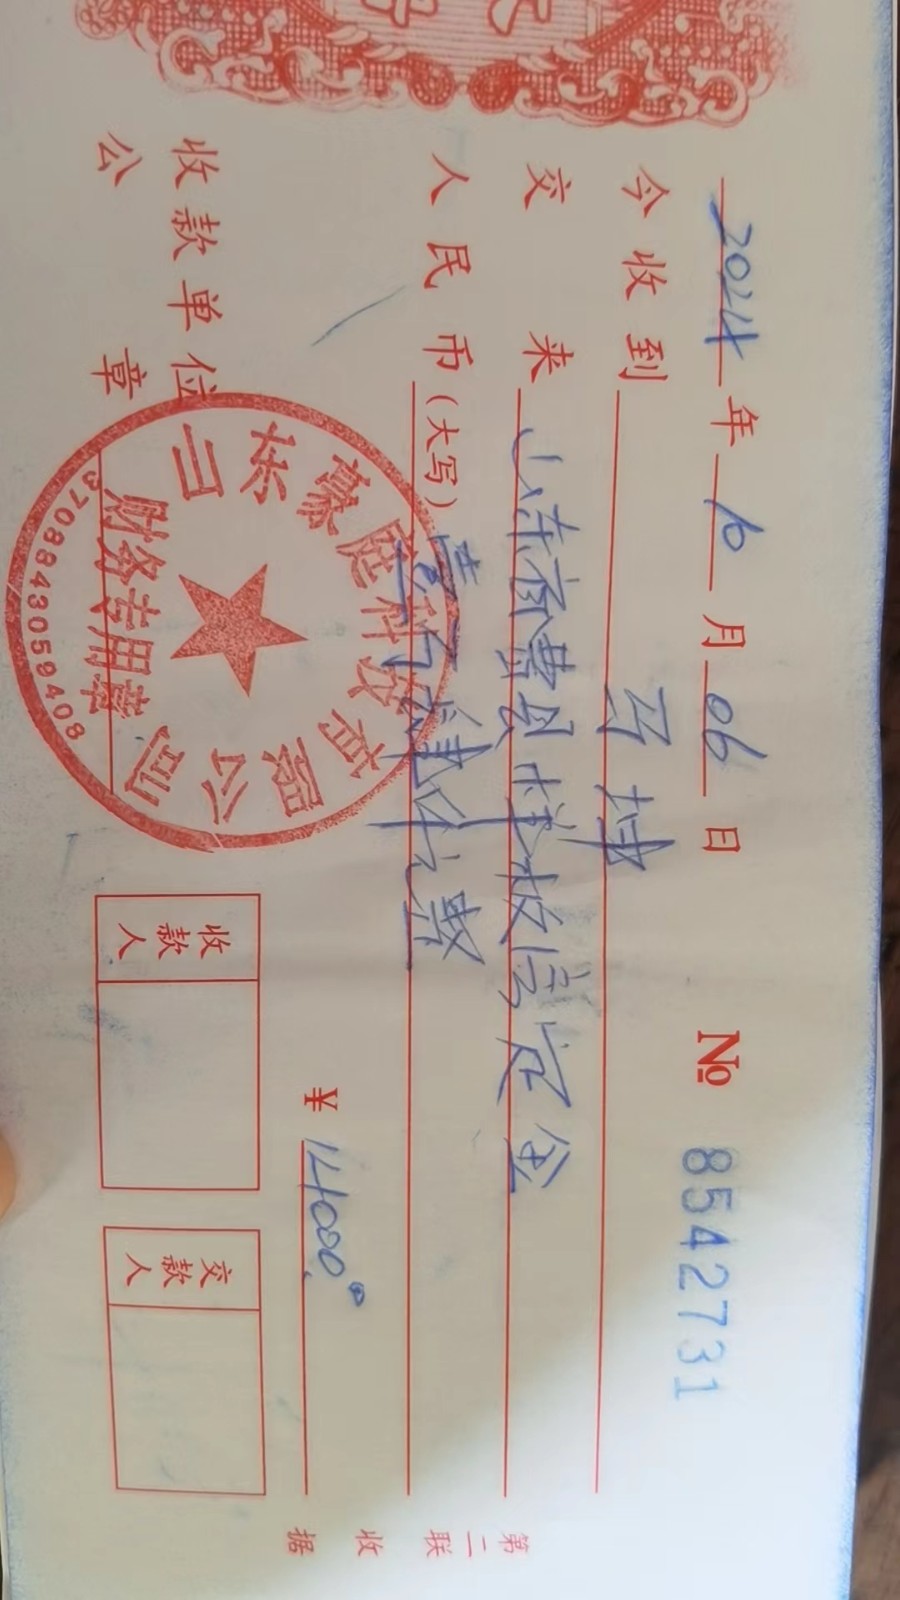 2024年10月06日 № 8542731
今收到 马坤
交来 山东省费县 授权 定金
人民币(大写) 壹万肆仟元整
¥ 14000.
收款单位
公章
收款人
交款人
山东豪庭科技有限公司
财务专用章
3708843059408
第二联 收据